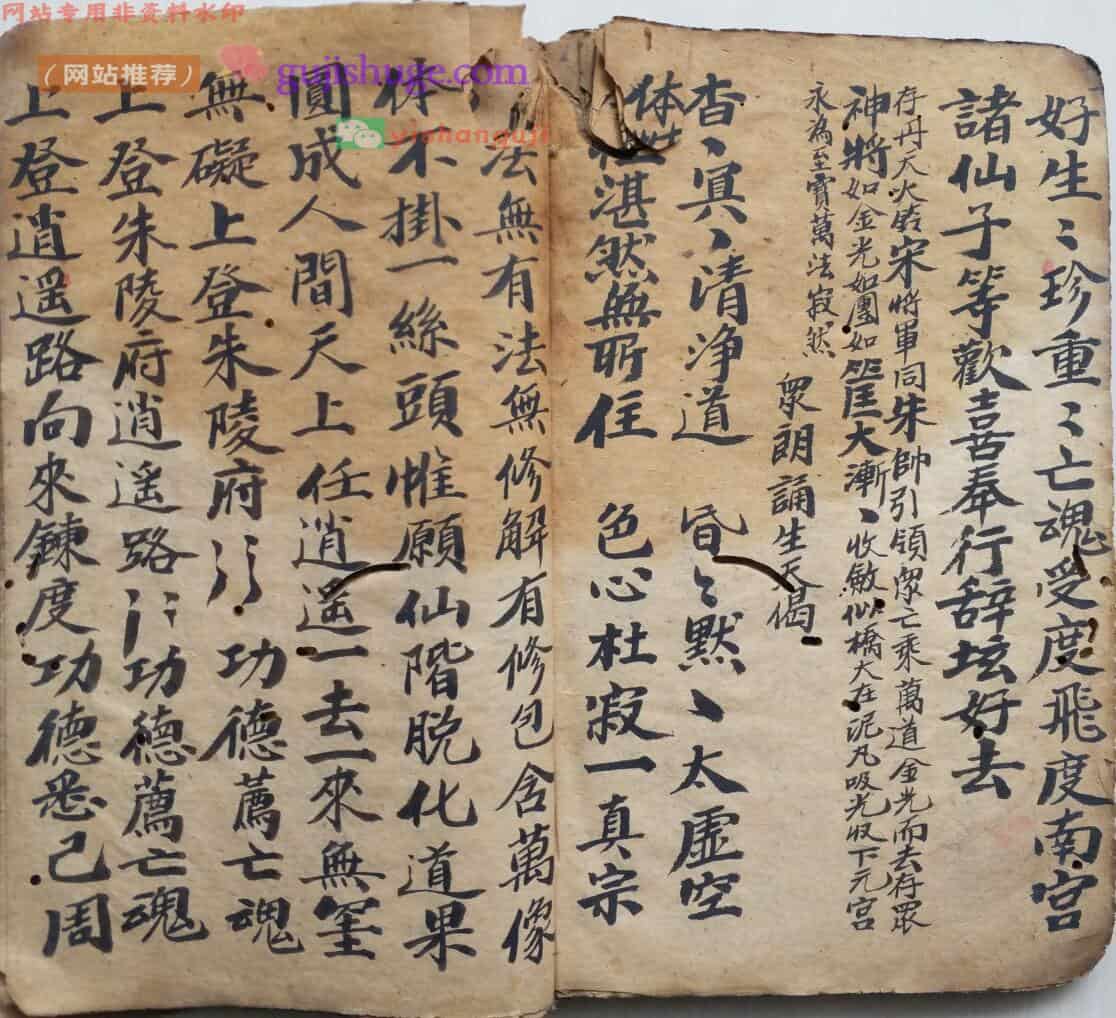 网站专用非资料水印
（网站推荐）
gujishuge.com
yishanguji
好生〻珍重〻亡魂受度飛度南宫
諸仙子等歡喜奉行辞坛好去
存丹天火鈴宋将軍同朱帥引領衆亡乘萬道金光而去存眾
神將如金光如團如筐大漸〻收敏似橋大在泥丸吸光收下元宫
永為至寳萬法寂然
衆朗誦生天偈
杳〻冥〻清浄道 昏〻默〻太虚空
体性湛然無所住 色心杜寂一真宗
法無有法無修解有修包含萬像
体不掛一絲頭惟願仙階脱化道果
圓成人間天上任逍遥一去一來無罣
無礙上登朱陵府 功德薦亡魂
上登朱陵府逍遥路 功德薦亡魂
上登逍遥路向來鍊度功德悉己周